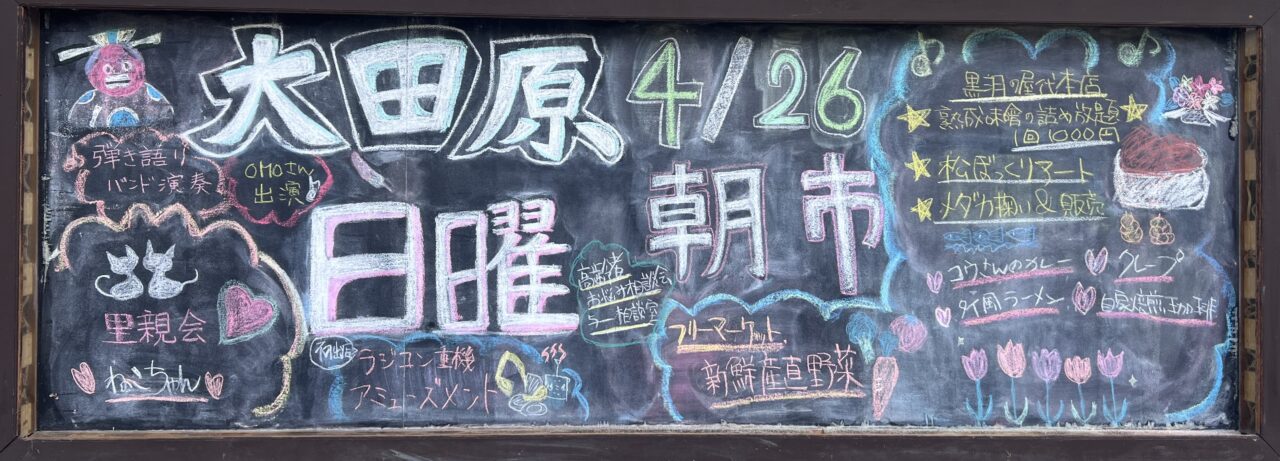 大田原 4/26
日曜 朝市
弾き語り
バンド演奏
OMOさん
出演
里親会
ねこちゃん
初出店
ラジコン重機
アミューズメント
高齢者
フリーマーケット
新鮮産直野菜
黒羽の屋代本店
熟成味噌の詰め放題
1回1000円
松ぼっくりアート
メダカ掬い&販売
コウさんのカレー
クレープ
タイ風ラーメン
自家焙煎